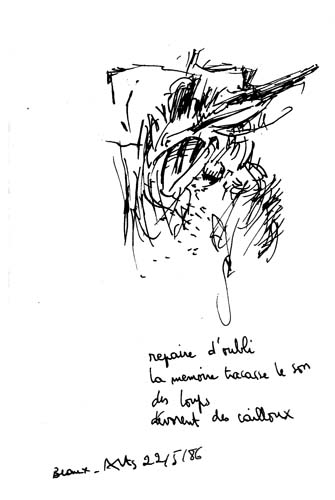 repaire d'oubli
la memoire tracasse le son
des loups
dévorent des cailloux
Beaux-Arts 22/5/86